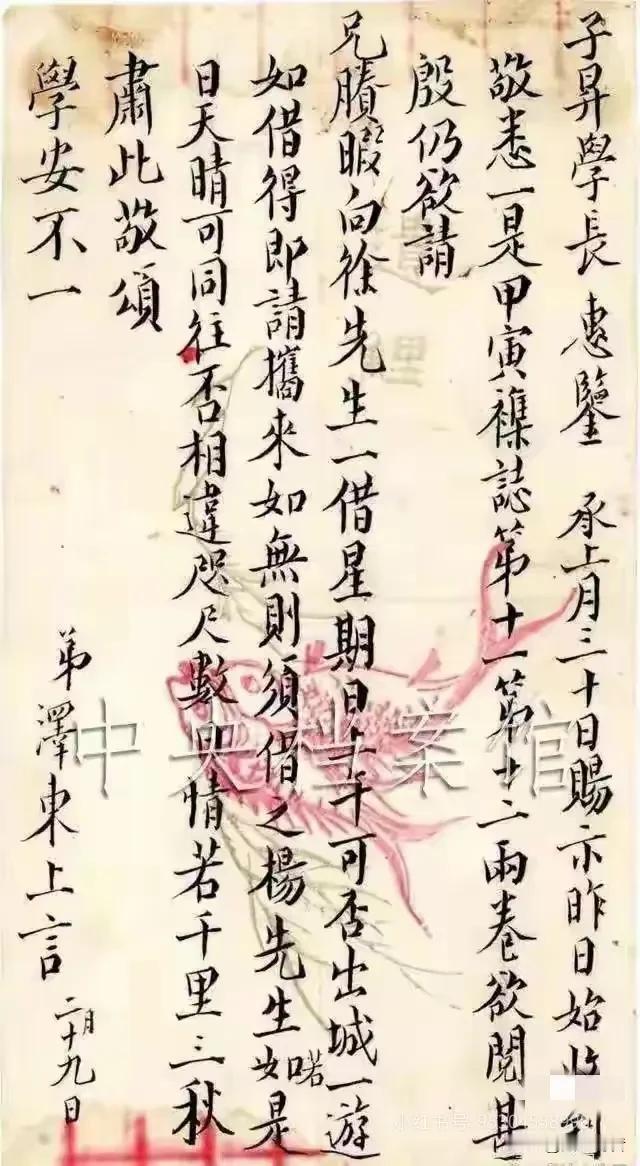 子昇學長 惠鑒 承上月三十日賜示昨日始收到
敬悉一是甲寅襍誌第十一第十二兩卷欲閱甚
殷仍欲請
兄賸暇向徐先生一借星期日上午可否出城一遊
如借得即請攜來如無則須借之楊先生如喏是
日天晴可同往否相違咫尺數日情若千里三秋
肅此敬頌
學安不一
弟澤東上言 二月十九日
中央档案馆
小红书号